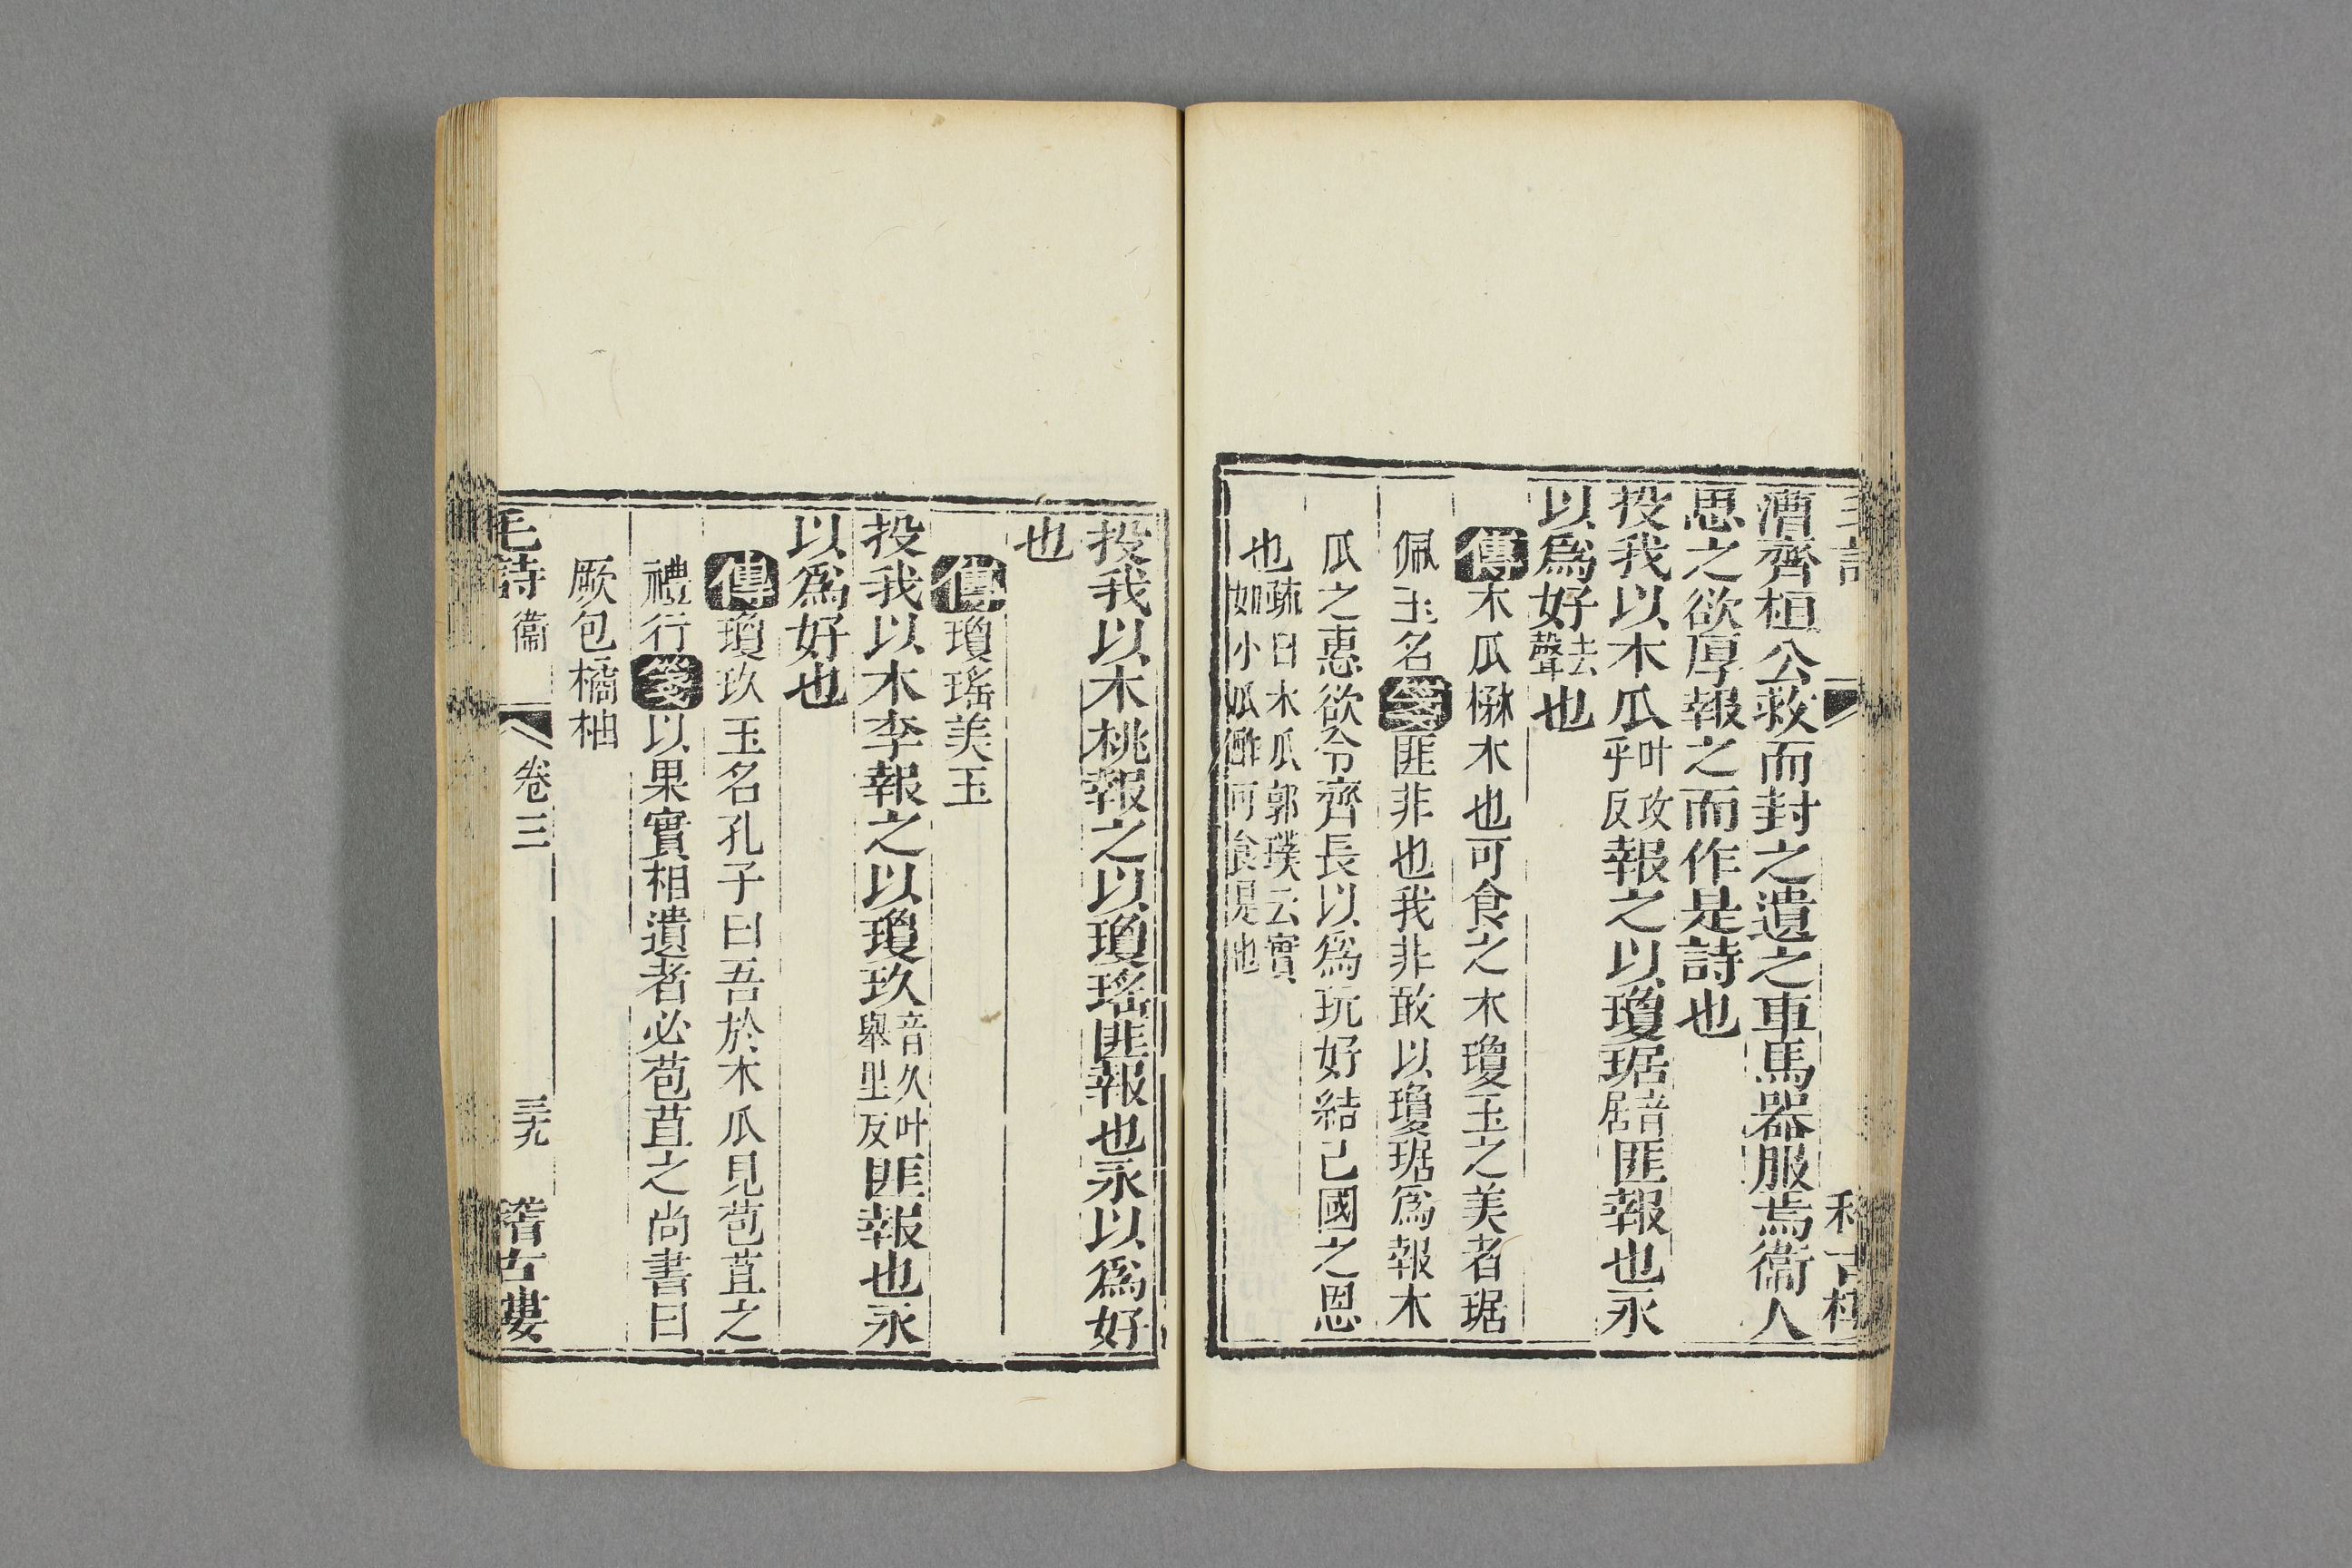 漕齊桓公救而封之遺之車馬器服焉衞人
思之欲厚報之而作是詩也
投我以木瓜叶攻乎反報之以瓊琚音居匪報也永
以爲好去聲也
傳木瓜楙木也可食之木瓊玉之美者琚
佩玉名箋匪非也我非敢以瓊琚爲報木
瓜之惠欲令齊長以爲玩好結己國之恩
也疏曰木瓜郭璞云實如小瓜酢可食是也
投我以木桃報之以瓊瑤匪報也永以爲好
也
傳瓊瑤美玉
投我以木李報之以瓊玖音久叶舉里反匪報也永
以爲好也
傳瓊玖玉名孔子曰吾於木瓜見苞苴之
禮行箋以果實相遺者必苞苴之尚書曰
厥包橘柚
毛詩 衞 卷三 三九 稽古樓